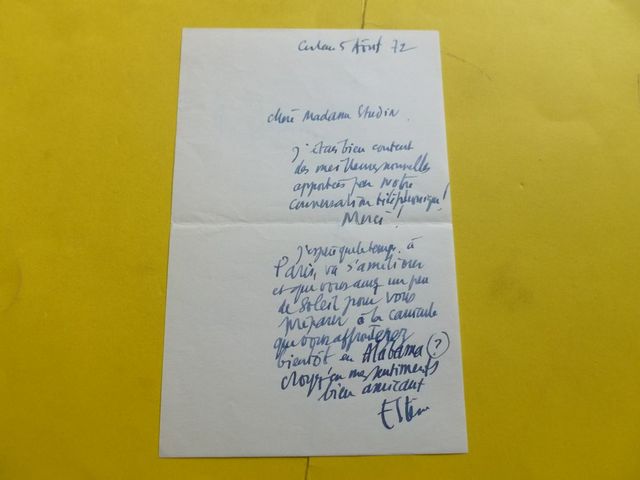 5 Août 72
Chère Madame Studin,
J'étais bien content
des meilleures nouvelles
apportées par notre
conversation téléphonique!
Merci!
J'espère que le temps à
Paris, va s'améliorer
et que vous aurez un peu
de soleil pour vous
préparer à la canicule
que vous affronterez
bientôt en Alabama (?)
croyez en mes sentiments
bien amicaux